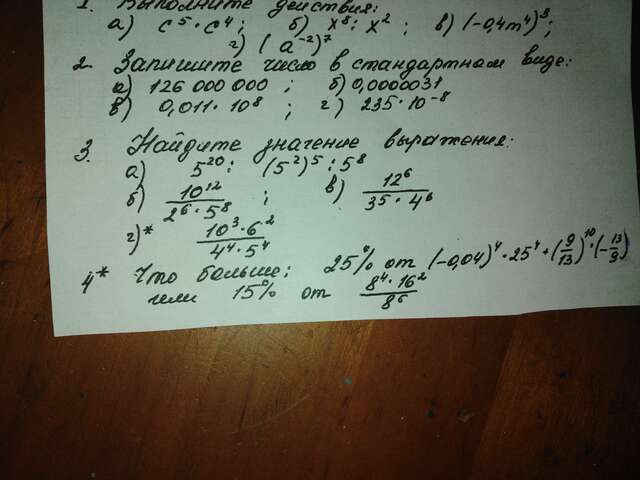 1. Выполните действия:
а) c⁵ · c⁴; б) x⁸ : x²; в) (-0,4m⁴)³;
г) (a⁻²)⁷
2. Запишите число в стандартном виде:
а) 126 000 000 ; б) 0,0000031
в) 0,011 · 10⁸ ; г) 235 · 10⁻⁸
3. Найдите значение выражения:
а) 5²⁰ : (5²)⁵ : 5⁸
б) 10¹² / 2⁶ · 5⁸ ; в) 12⁶ / 3⁵ · 4⁶
г)* 10³ · 6² / 4⁴ · 5⁴
4* Что больше: 25% от (-0,04)⁴ · 25⁴ + (9/13)¹⁰ · (-13/9)
или 15% от 8⁴ · 16² / 8⁶